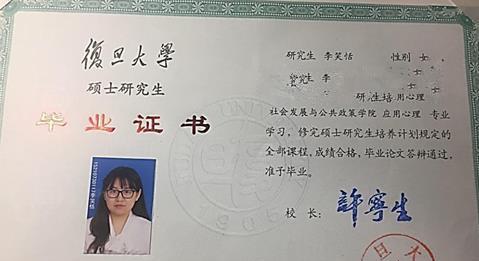 復旦大學
硕士研究生
毕业证书
研究生 李笑恬 性别 女
李
用心理
社会发展与公共政策学院 应用心理 专业
学习,修完硕士研究生培养计划规定的
全部课程,成绩合格,毕业论文答辩通过,
准予毕业。
校 长: 許寧生
旦大